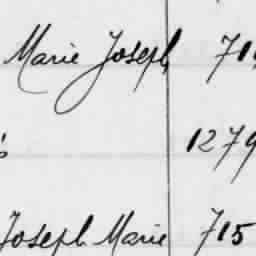 Marie Joseph 710
1279
Joseph Marie 715